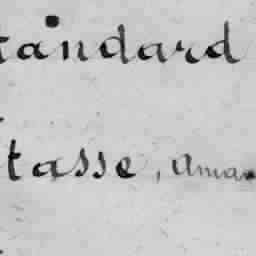 tandard
tasse, Aman